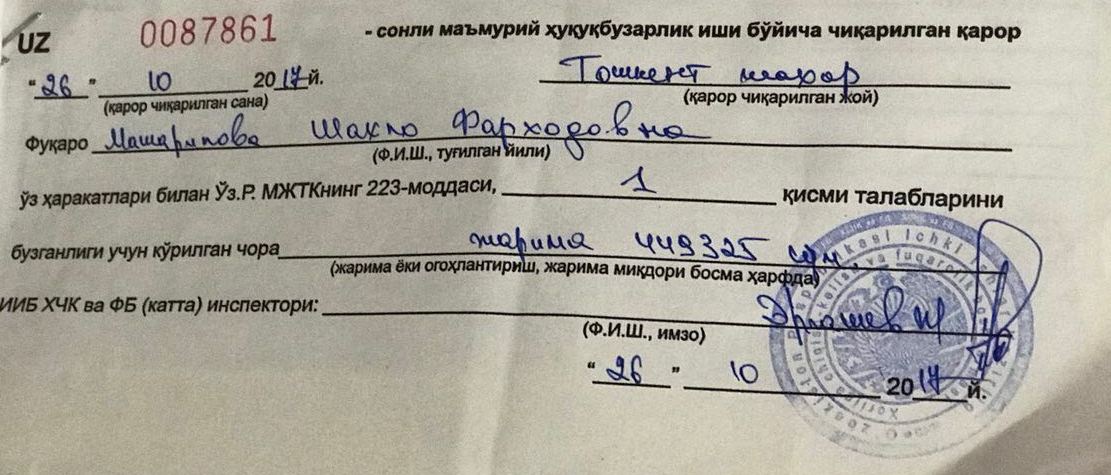 UZ 0087861 - сонли маъмурий ҳуқуқбузарлик иши бўйича чиқарилган қарор
“26” 10 2017й. Тошкент шахар
(қарор чиқарилган сана) (қарор чиқарилган жой)
Фуқаро Машарипова Шахло Фарходовна
(Ф.И.Ш., туғилган йили)
ўз ҳаракатлари билан Ўз.Р. МЖТКнинг 223-моддаси, 1 қисми талабларини
бузганлиги учун кўрилган чора жарима 449325 сум.
(жарима ёки огоҳлантириш, жарима миқдори босма ҳарфда)
ИИБ ХЧК ва ФБ (катта) инспектори: Эргашев
(Ф.И.Ш., имзо)
“26” 10 2017й.